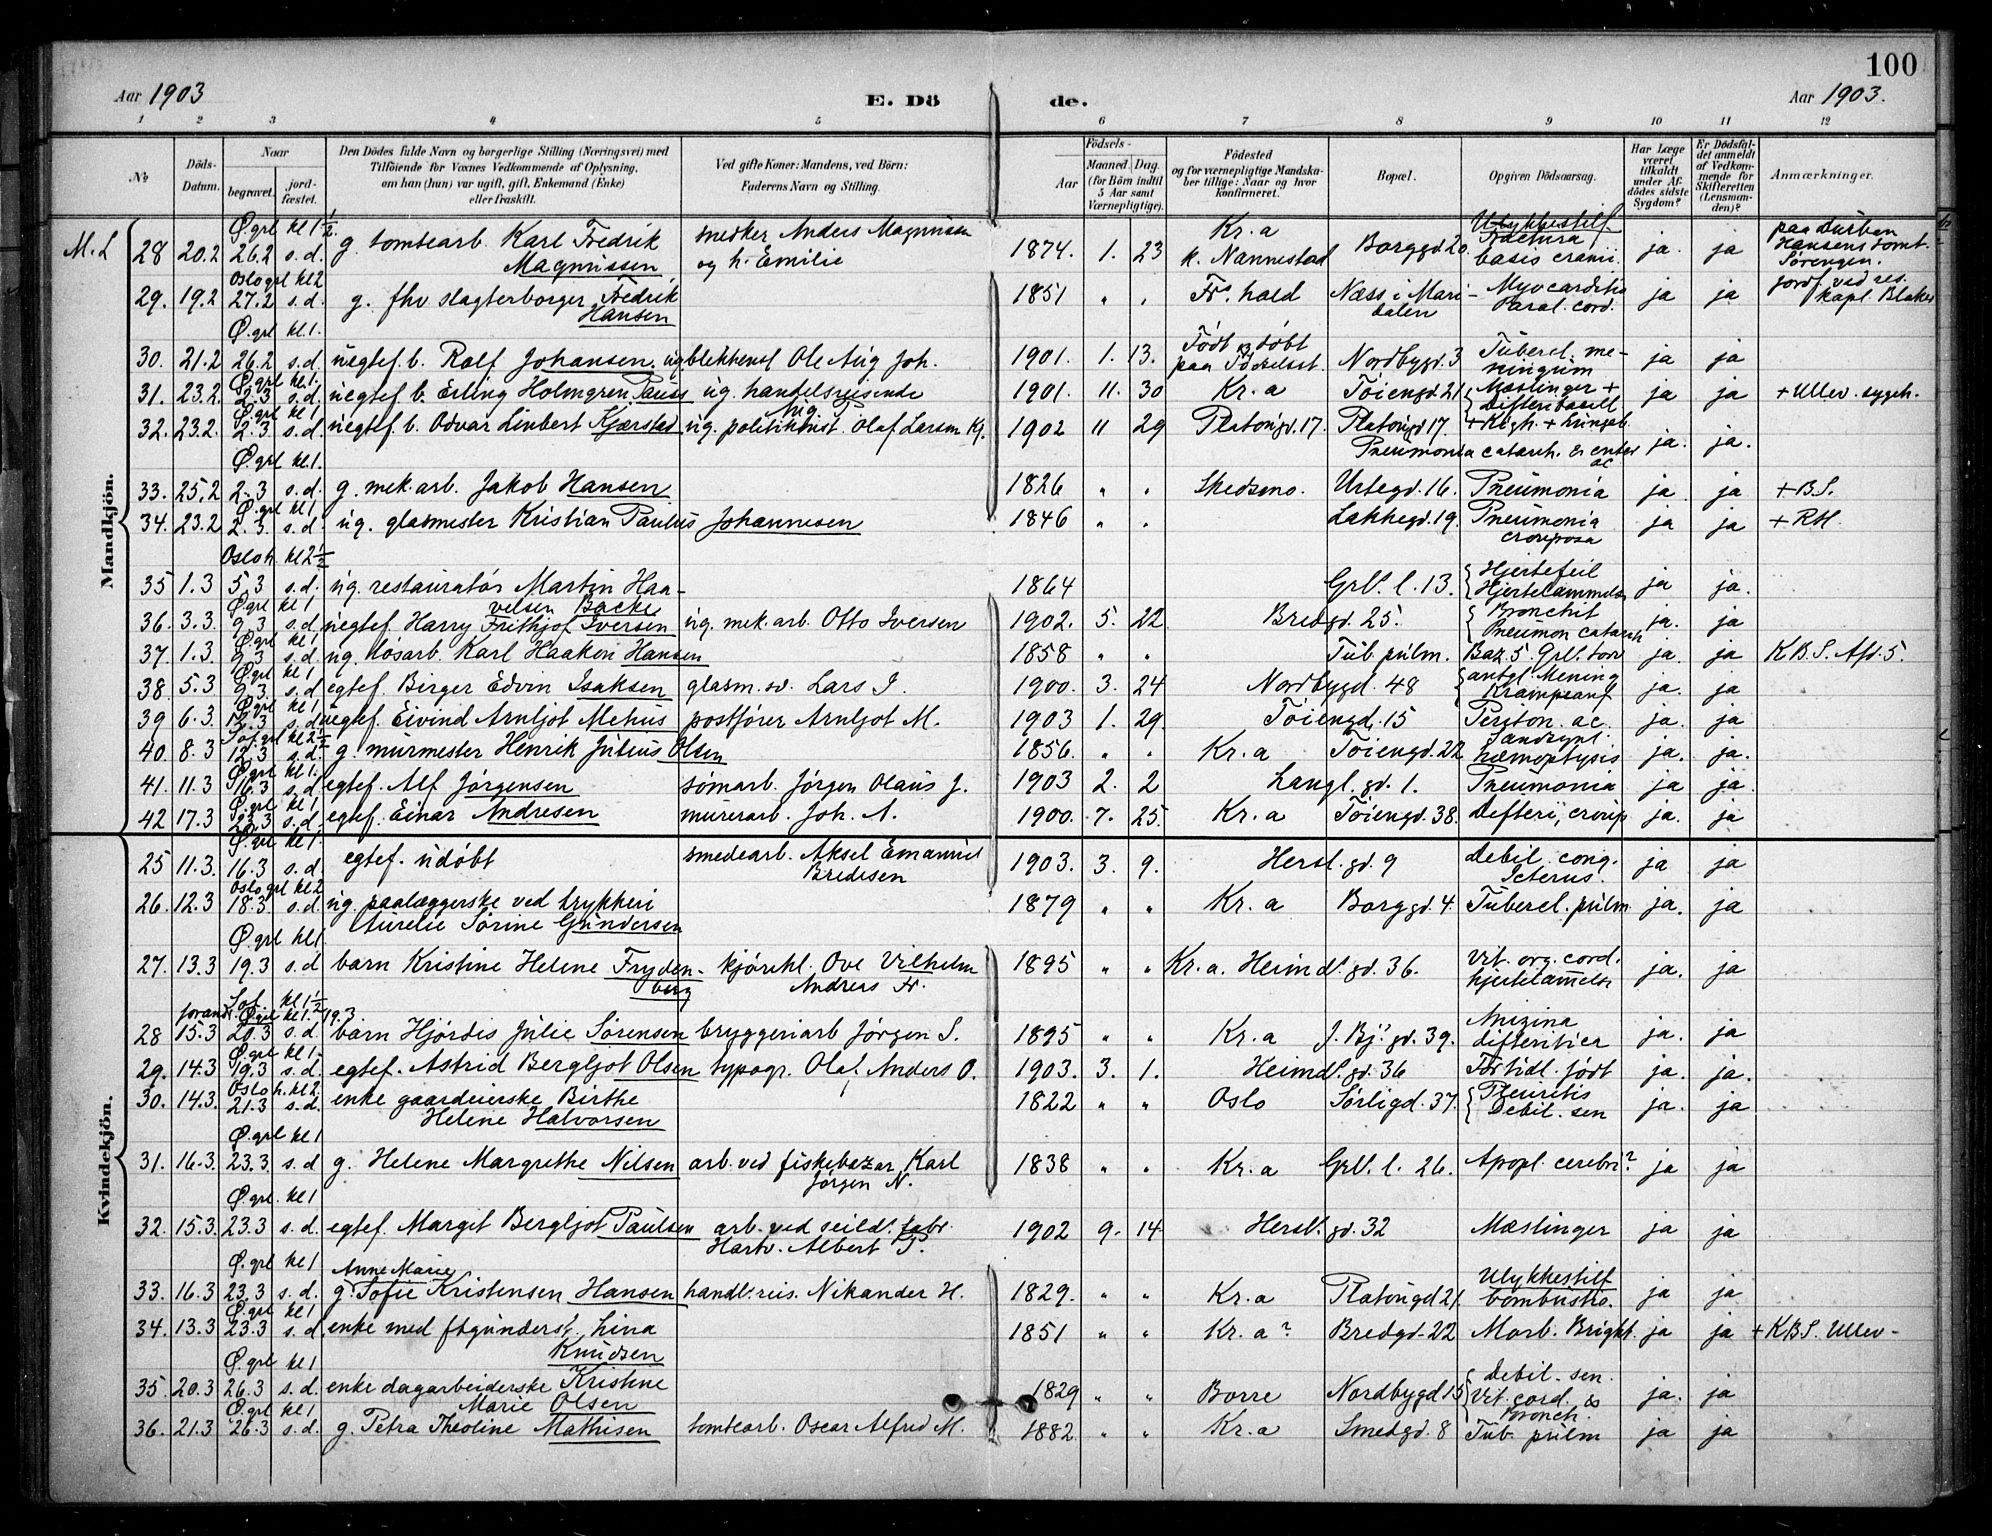 100
Aar 1903 E. Dö de. Aar 1903.
1 2 3 4 5 6 7 8 9 10 11 12
№ Döds-Datum. Naar begravet. jord-fæstet. Den Dödes fulde Navn og borgerlige Stilling (Næringsvei) med Tilföiende for Voxnes Vedkommende af Oplysning, om han (hun) var ugift, gift, Enkemand (Enke) eller fraskilt. Ved gifte Koner: Mandens, ved Börn: Faderens Navn og Stilling. Födsels- Aar Maaned. Dag. (for Börn indtil 5 Aar samt Værnepligtige). Födested og for værnepligtige Mandskaber tillige: Naar og hvor konfirmeret. Bopæl. Opgiven Dödsaarsag. Har Læge været tilkaldt under Afdödes sidste Sygdom? Er Dödsfaldet anmeldt af Vedkommende for Skifteretten (Lensmanden)? Anmærkninger.
Mandkjön.
Ø.grl kl 1 1/2.
M.L 28 20.2 26.2 s.d. g. tomtearb. Karl Fredrik Magnussen snedker Anders Magnussen og h. Emilie 1874. 1. 23 Kr.a k. Nannestad Borggd. 20. Ulykkestilf Fractura basis cranii. ja. ja paa Durban Hansens tomt. Sørengen.
Oslo grl kl 2
29. 19.2 27.2 s.d. g. fhv slagterborger Fredrik Hansen 1851 " " Fr. hald Næss i Maridalen Myocarditis Paral. cord. ja ja jordf. ved res. kapl. Blakes
Ø.grl kl.1.
30. 21.2 26.2 s.d. uegtef. b. Rolf Johansen. ug. blikkensl Ole Aug Joh. 1901. 1. 13. Født & døbt paa Fødselsst. Nordbygd. 3 Tubercl. meningium ja ja
Ø.grl kl.1.
31. 23.2. 2.3 s.d. uegtef. b. Erling Holmgren Pauss ug. handelsreisende 1901. 11. 30 Kr.a Tøiengd. 21 Mæslinger + Difteribacill ja ja + Ullev. sygeh.
Ø.grl kl 1
32. 23.2. 2.3 s.d. uegtef. b. Odvar Linbert Kjærstad ug. politikonst Olaf Larsen Kj. 1902 11 29 Platougd. 17. Platougd 17. Pneumonia catarrh. & enter ac ja. ja.
Ø.grl kl.1.
33. 25.2 2.3 s.d. g. mek.arb. Jakob Hansen 1826 " " Skedsmo. Urtegd. 16. Pneumonia ja. ja. + B.S.
Ø.grl kl 1
34. 23.2 2.3. s.d. ug. glasmester Kristian Paulus Johannesen 1846 " " Lakkegd. 19. Pneumonia crouposa ja ja + RH.
Oslo h. kl 2 1/2
35 1.3 5.3 s.d. ug. restauratør Martin Haavelsen Backe 1864 Grl. l. 13. Hjertefeil Hjertelammelse ja ja.
Ø.grl kl 1
36. 3.3. 9.3 s.d. uegtef. Harry Frithjof Iversen ug. mek.arb. Otto Iversen 1902. 5. 22 Bredgd. 25. Bronchit Pneumon catarrh ja. ja
Ø.grl kl 1
37. 1.3. 9.3 s.d. ug. løsarb. Karl Haakon Hansen 1858 " " Tub. pulm. Baz. 5. Grl. torv ja. ja K.B.S. Afd. 5.
Ø.grl kl 1
38. 5.3 9.3. s.d. egtef. Birger Edvin Isaksen glasm. sv. Lars I. 1900. 3. 24 Nordbygd. 48 antgl. Mening Krampeanf ja. ja
Ø.grl kl 1
39 6.3. 12.3 s.d. uegtef. Eivind Arnljot Mehus postfører Arnljot M. 1903 1. 29. Tøiengd. 15 Periton. ac. ja. ja
Sof.grl kl 2 1/2
40. 8.3 12.3 s.d. g. murmester Henrik Julius Olsen 1856. " " Kr.a Tøiengd. 22 hæmoptysis ja. ja.
Ø.grl kl 1.
41. 11.3 16.3 s.d. egtef. Alf Jørgensen sømarb. Jørgen Olaus J. 1903 2. 2 Langl. gd. 1. Pneumonia ja ja.
Ø.grl kl 1
42 17.3 23.3 s.d. egtef. Einar Andresen murerarb. Joh. A. 1900. 7. 25. Kr.a Tøiengd. 38. Difteri, croup ja. ja
Kvindekjön.
Ø.grl kl 1.
25 11.3. 16.3 s.d. egtef. udøbt smedearb. Aksel Emanuel Bredesen 1903. 3. 9. Hersl. gd. 9 Debil. cong. Icterus. ja ja
Oslo grl kl 2
26. 12.3 18.3. s.d. ug. paalæggerske ved trykkeri Aurelie Sørine Gundersen 1879 " " Kr.a Borggd. 4. Tubercl. pulm ja. ja
Ø.grl kl 1
27. 13.3 19.3 s.d barn Kristine Helene Frydenberg kjørekl. Ove Vilhelm Andreas Fr. 1895 " " Kr.a. Heimdl. gd. 36. Vit. org. cord. hjertelammelse ja. ja
Sof. kl 1 1/2 forandr. Ø.grl kl 1. 19.3
28 15.3 20.3 s.d. barn Hjørdis Julie Sørensen bryggeriarb Jørgen S. 1895 " " Kr.a J. Bj. gd. 39. difteritier ja. ja
Ø.grl kl 1
29. 14.3 19.3 s.d. egtef. Astrid Bergljot Olsen typogr. Olaf Anders O. 1903. 3. 1. Heimdl. gd. 36 Førtidl. født ja. ja.
Oslo h. kl 2
30. 14.3. 21.3 s.d. enke gaardeierske Birthe Helene Halvorsen 1822 " " Oslo Sørligd. 37. Pleuritis Debil. sen ja. ja
Ø.grl kl 1
31. 16.3. 23.3. s.d g. Helene Margrethe Nilsen arb. ved fiskebazar Karl Jørgen N. 1838 " " Kr.a Grl. l. 26. Apopl. cerebri? ja ja
Ø.grl. kl 1
32. 15.3. 23.3. s.d. egtef. Margit Bergljot Paulsen arb. ved seildl. fabr. Hartv. Albert P. 1902 9. 14. Hersl. gd. 32 Mæslinger ja ja
Ø.grl kl 1
33. 16.3 23.3 s.d. g. Anne Marie Sofie Kristensen Hansen handl. reis. Nikander H. 1829. " " Kr.a Platougd 21. Ulykkestilf combustio. ja ja
Ø.grl kl 1
34. 13.3 23.3 s.d. enke med fhgunderst. Lina Knudsen 1851 " " Kr.a? Bredgd. 22 Morb. Bright. ja ja + K.B.S. Ullev-
Ø.grl kl 1
35 20.3 26.3 s.d. enke dagarbeiderske Kristine Marie Olsen 1829 " " Borre Nordbygd 15 Debil. sen. Vit. cord. & Bronch. ja. ja
Ø.grl kl 1
36. 21.3 26.3 s.d. g. Petra Theoline Mathisen tomtearb. Oscar Alfred M. 1882. " " Kr.a Smedgd. 8 Tub. pulm ja ja